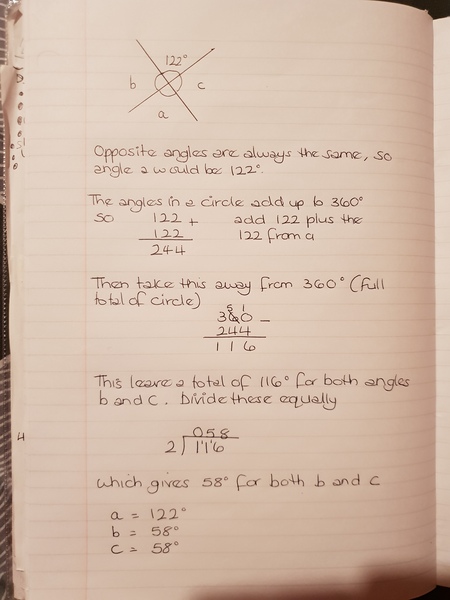 122°
b
c
a
Opposite angles are always the same, so
angle a would be 122°.
The angles in a circle add up to 360°
so 122 + add 122 plus the
122 122 from a
244
Then take this away from 360° (full
total of circle)
5 1
360 -
244
116
This leave a total of 116° for both angles
b and c. Divide these equally
058
2 116
which gives 58° for both b and c
a = 122°
b = 58°
c = 58°